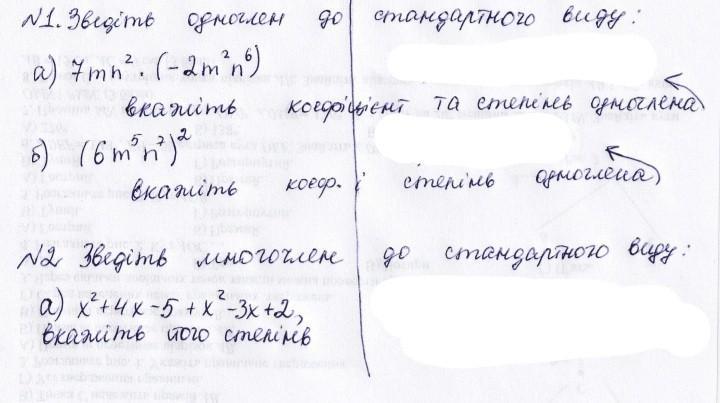 №1. Зведіть одночлен до стандартного виду:
а) 7mn² · (-2m²n⁶)
вкажіть коефіцієнт та степінь одночлена
б) (6m⁵n⁷)²
вкажіть коеф. і степінь одночлена
№2 Зведіть многочлен до стандартного виду:
а) x²+4x-5+x²-3x+2,
вкажіть його степінь